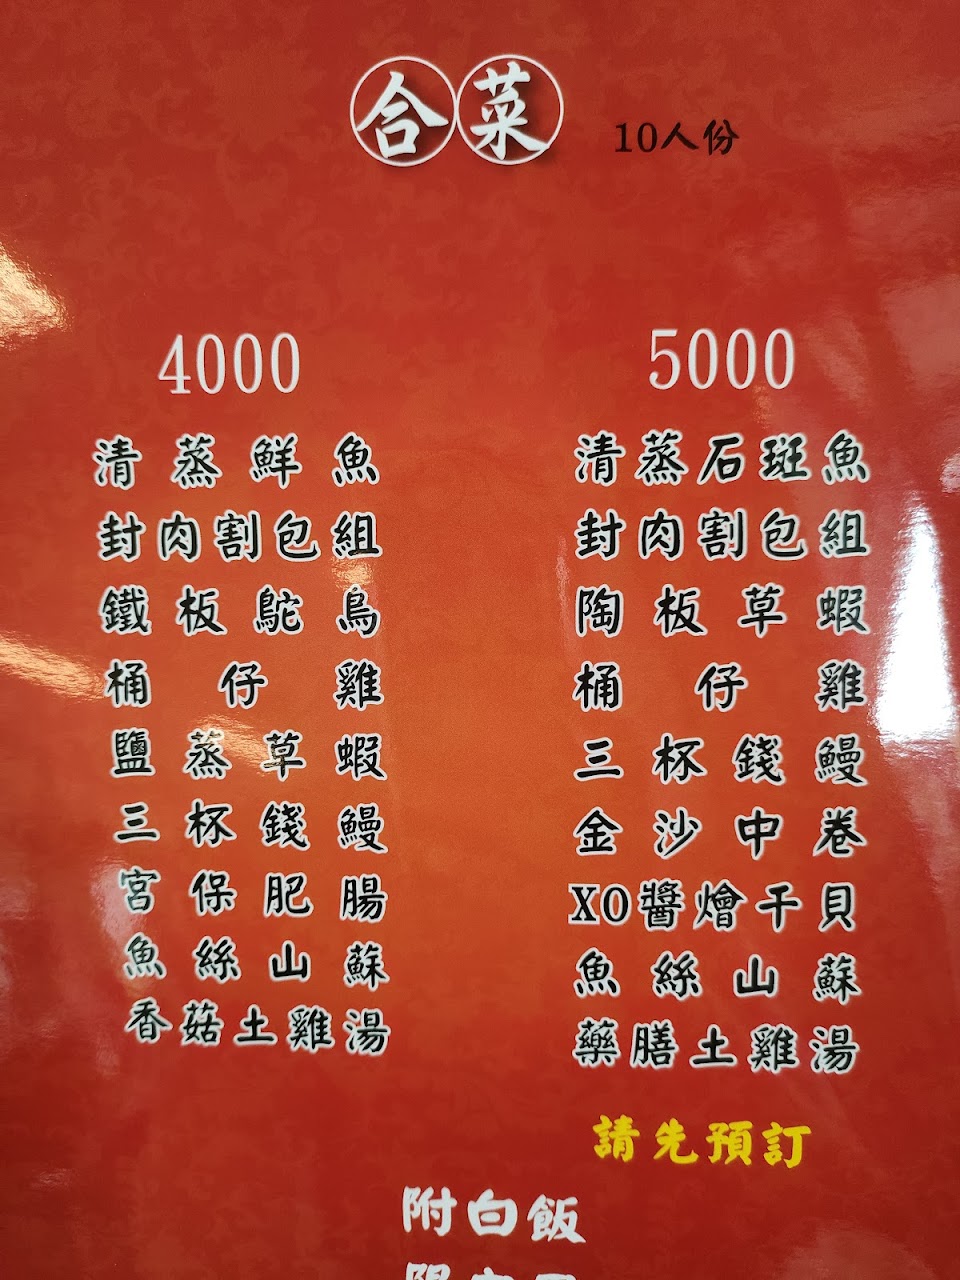 合菜 10人份
4000
清蒸鮮魚
封肉割包組
鐵板鴕鳥
桶仔雞
鹽蒸草蝦
三杯錢鰻
宮保肥腸
魚絲山蘇
香菇土雞湯
5000
清蒸石斑魚
封肉割包組
陶板草蝦
桶仔雞
三杯錢鰻
金沙中卷
XO醬燴干貝
魚絲山蘇
藥膳土雞湯
請先預訂
附白飯